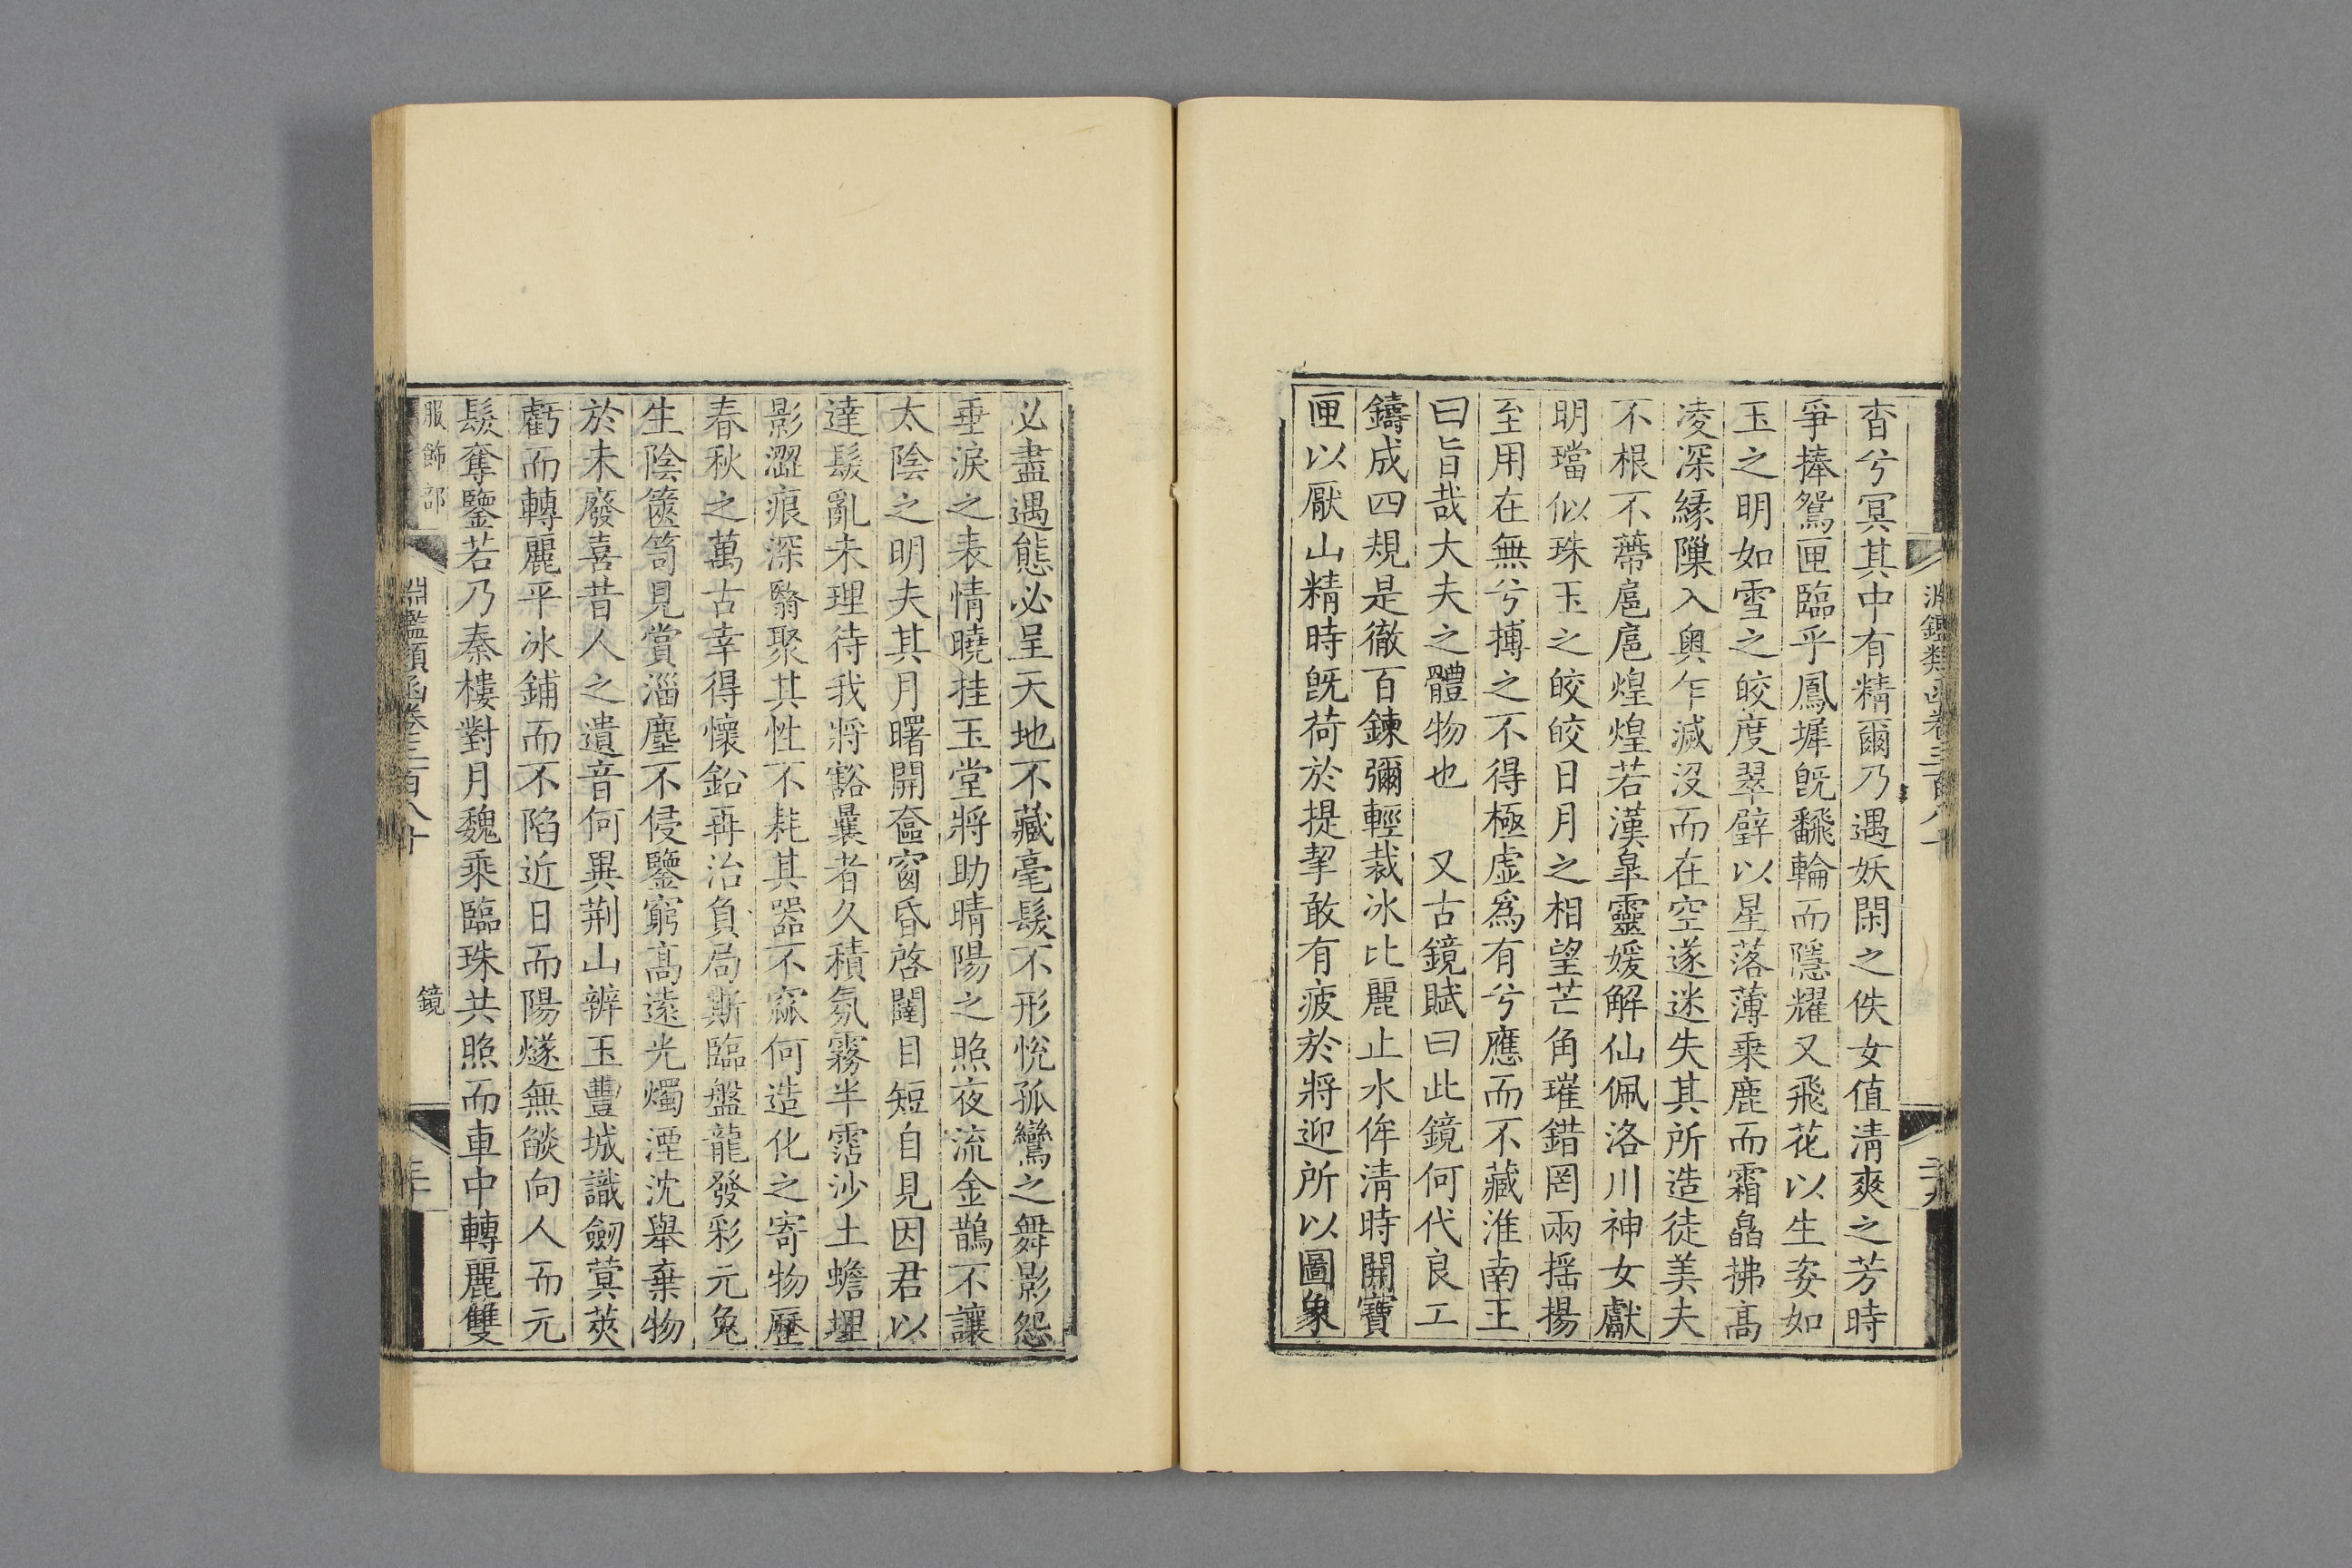 淵鑑類函卷三百八十
杳兮冥其中有精爾乃遇妖閑之佚女值清爽之芳時
爭捧鴛匣臨乎鳳墀旣飜輪而隱耀又飛花以生姿如
玉之明如雪之皎度翠壁以星落薄乘鹿而霜皛拂高
凌深緣隟入奥乍減沒而在空遂迷失其所造徒美夫
不根不蔕扈扈煌煌若漢臯靈媛解仙佩洛川神女獻
明璫似珠玉之皎皎日月之相望芒角璀錯罔兩摇揚
至用在無兮搏之不得極虛爲有兮應而不藏淮南王
曰旨哉大夫之體物也　又古鏡賦曰此鏡何代良工
鑄成四規是徹百鍊彌輕裁冰比麗止水侔清時開寶
匣以厭山精時旣荷於提挈敢有疲於將迎所以圖象
必盡遇態必呈天地不藏毫髮不形恱孤鸞之舞影怨
垂淚之表情曉挂玉堂將助晴陽之照夜流金鵲不讓
太陰之明夫其月曙開奩窗昏啓闥目短自見因君以
達髮亂未理待我將豁曩者久積氛霧半霑沙土蟾埋
影澀痕深翳聚其性不耗其器不窳何造化之寄物歷
春秋之萬古幸得懷鉛再治負局斯臨盤龍發彩元兔
生陰篋笥見賞淄塵不侵鑒窮高遠光燭湮沈舉棄物
於未廢喜昔人之遺音何異荆山辨玉豐城識劒蓂莢
虧而轉麗平冰鋪而不陷近日而陽燧無燄向人而元
髮奪鑒若乃秦樓對月魏乘臨珠共照而車中轉麗雙
服飾部
淵鑑類函卷三百八十
鏡